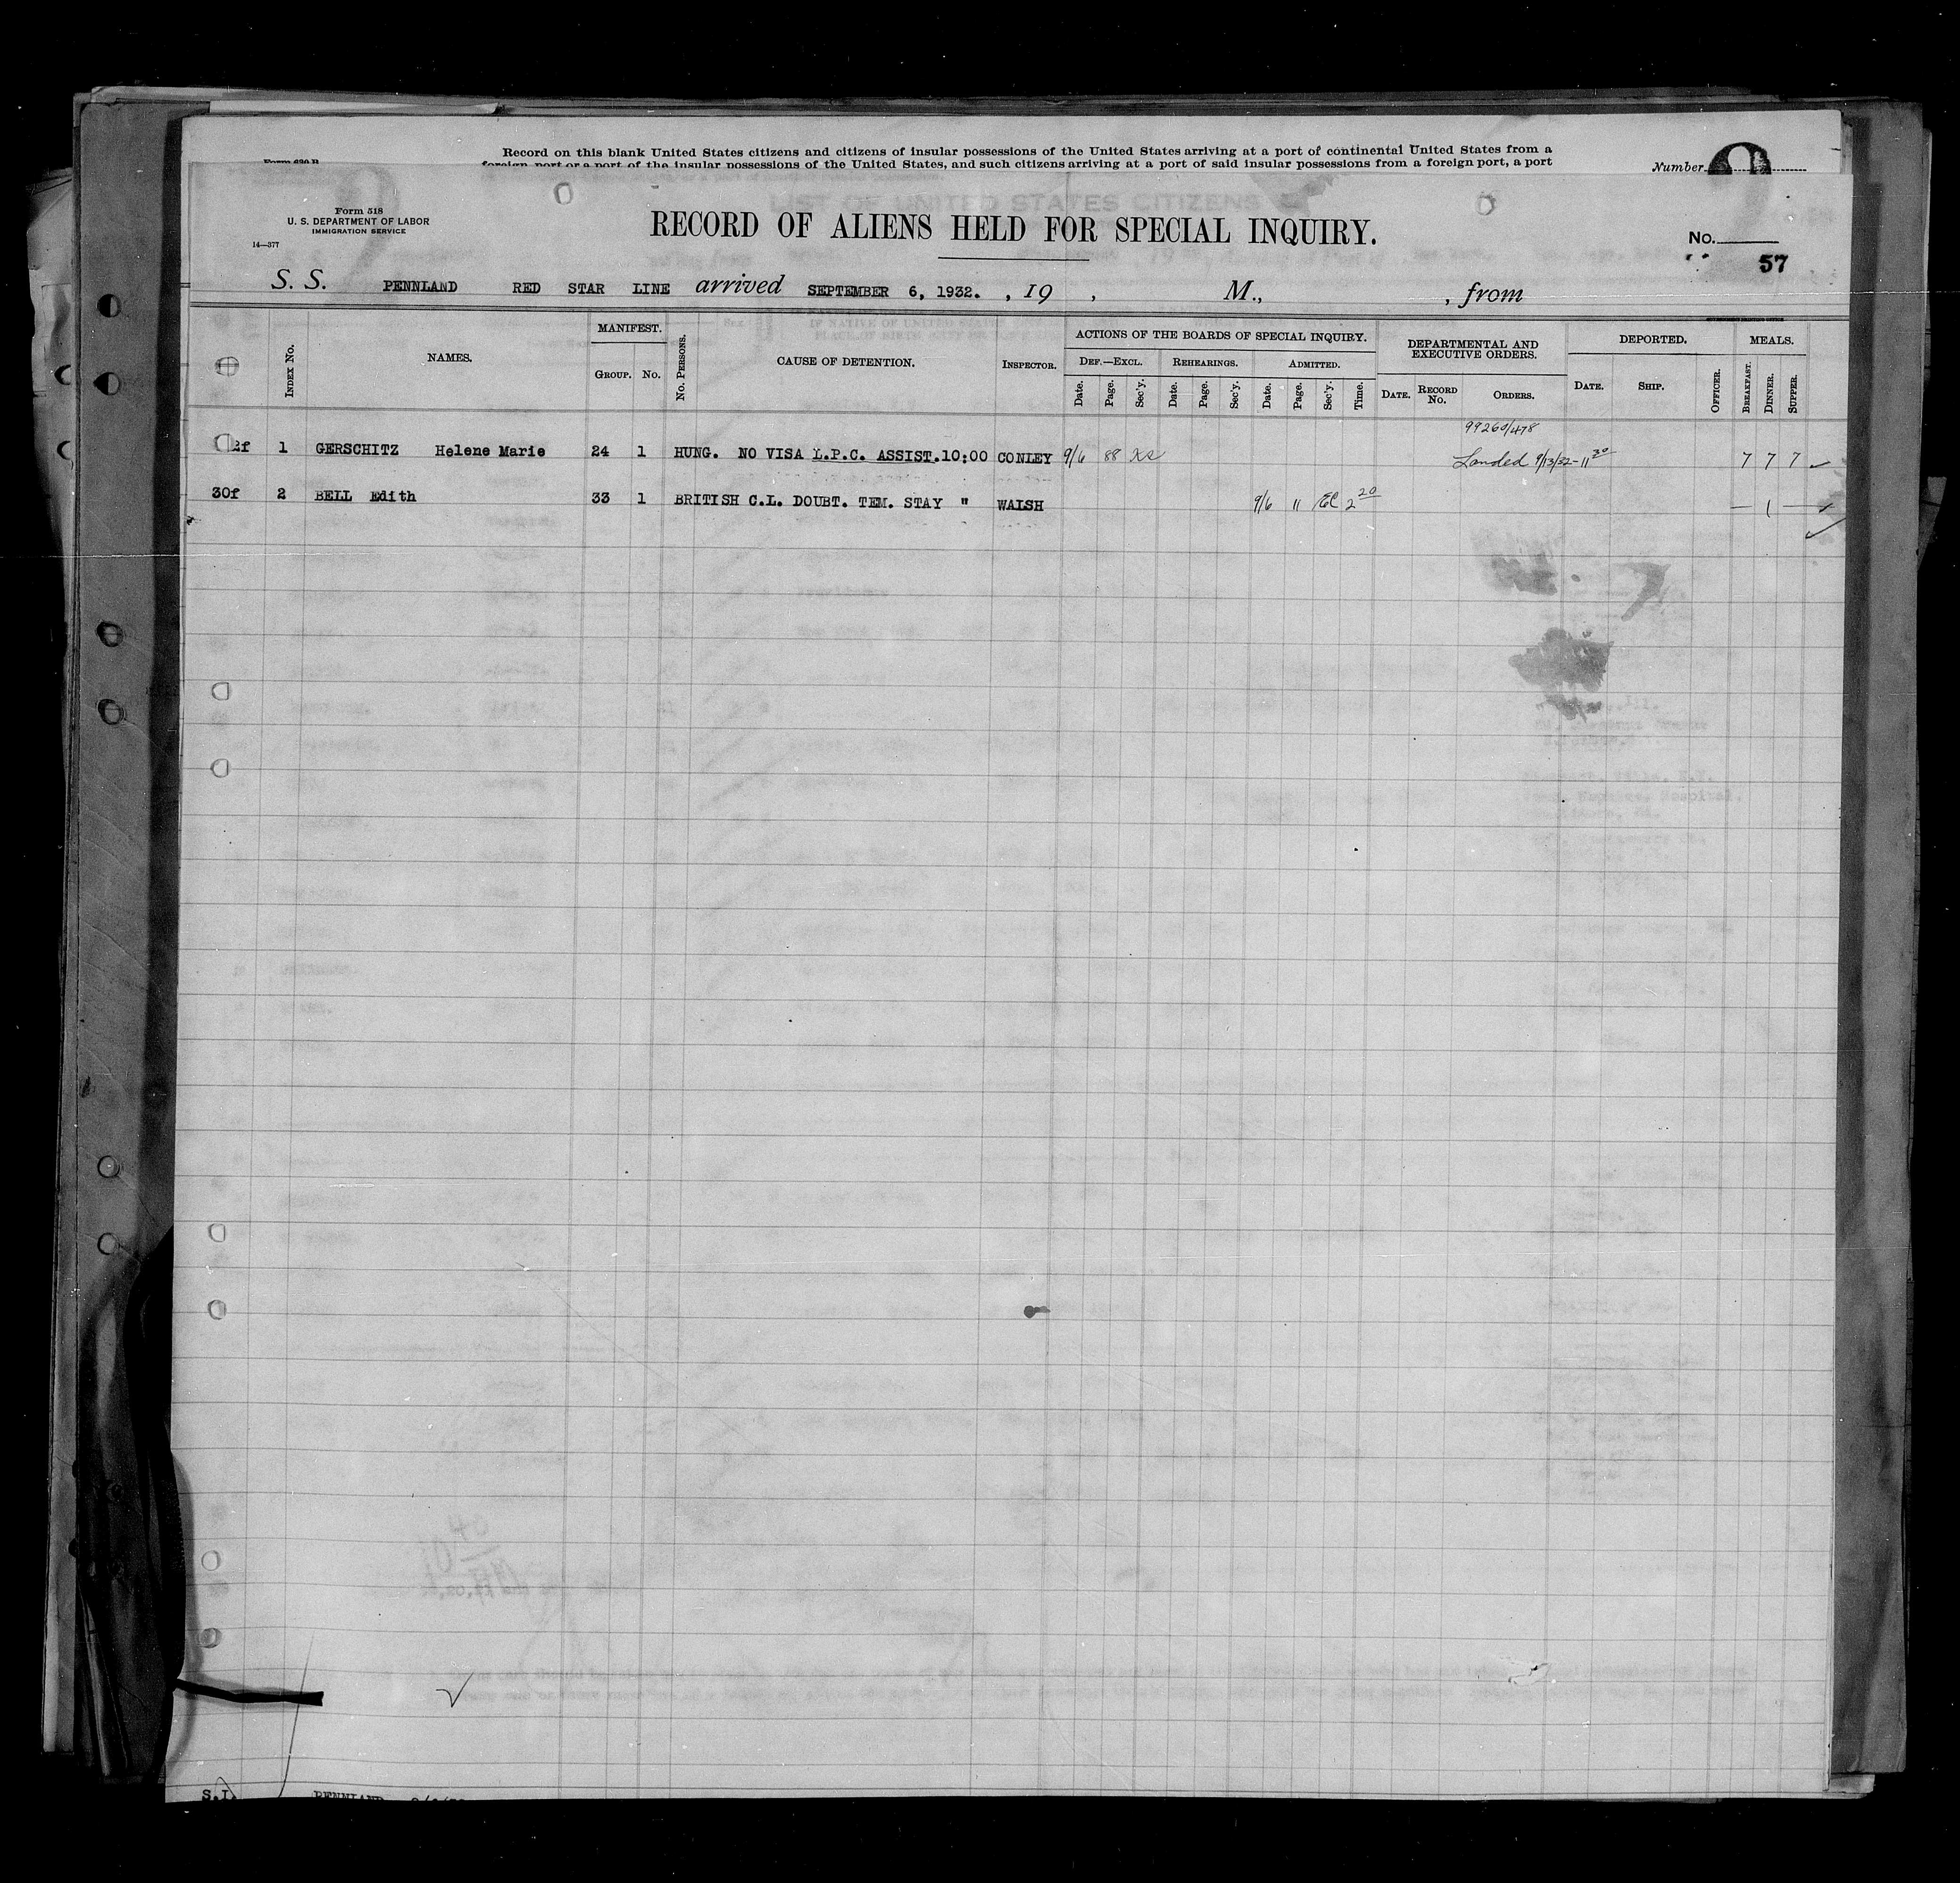 Record on this blank United States citizens and citizens of insular possessions of the United States arriving at a port of continental United States from a
foreign port or a port of the insular possessions of the United States, and such citizens arriving at a port of said insular possessions from a foreign port, a port
Form 630 B
Number
Form 518
U. S. DEPARTMENT OF LABOR
IMMIGRATION SERVICE
14—377
LIST OF UNITED STATES CITIZENS
RECORD OF ALIENS HELD FOR SPECIAL INQUIRY.
No.
57
S. S. PENNLAND RED STAR LINE arrived SEPTEMBER 6, 1932. , 19 , M., , from
INDEX No. NAMES. MANIFEST. GROUP. No. No. PERSONS. CAUSE OF DETENTION. INSPECTOR. ACTIONS OF THE BOARDS OF SPECIAL INQUIRY. DEPARTMENTAL AND EXECUTIVE ORDERS. DEPORTED. MEALS.
DEF.—EXCL. REHEARINGS. ADMITTED.
Date. Page. Sec'y. Date. Page. Sec'y. Date. Page. Sec'y. Time. DATE. RECORD No. ORDERS. DATE. SHIP. OFFICER. BREAKFAST. DINNER. SUPPER.
99260/478
2f 1 GERSCHITZ Helene Marie 24 1 HUNG. NO VISA L.P.C. ASSIST. 10:00 CONLEY 9/6 88 Landed 9/13/32 - 11 30 7 7 7 ✓
30f 2 BELL Edith 33 1 BRITISH C.L. DOUBT. TEM. STAY " WALSH 9/6 " EC 2 20 — 1 — ✓
✓
✓
S.I. PENNLAND